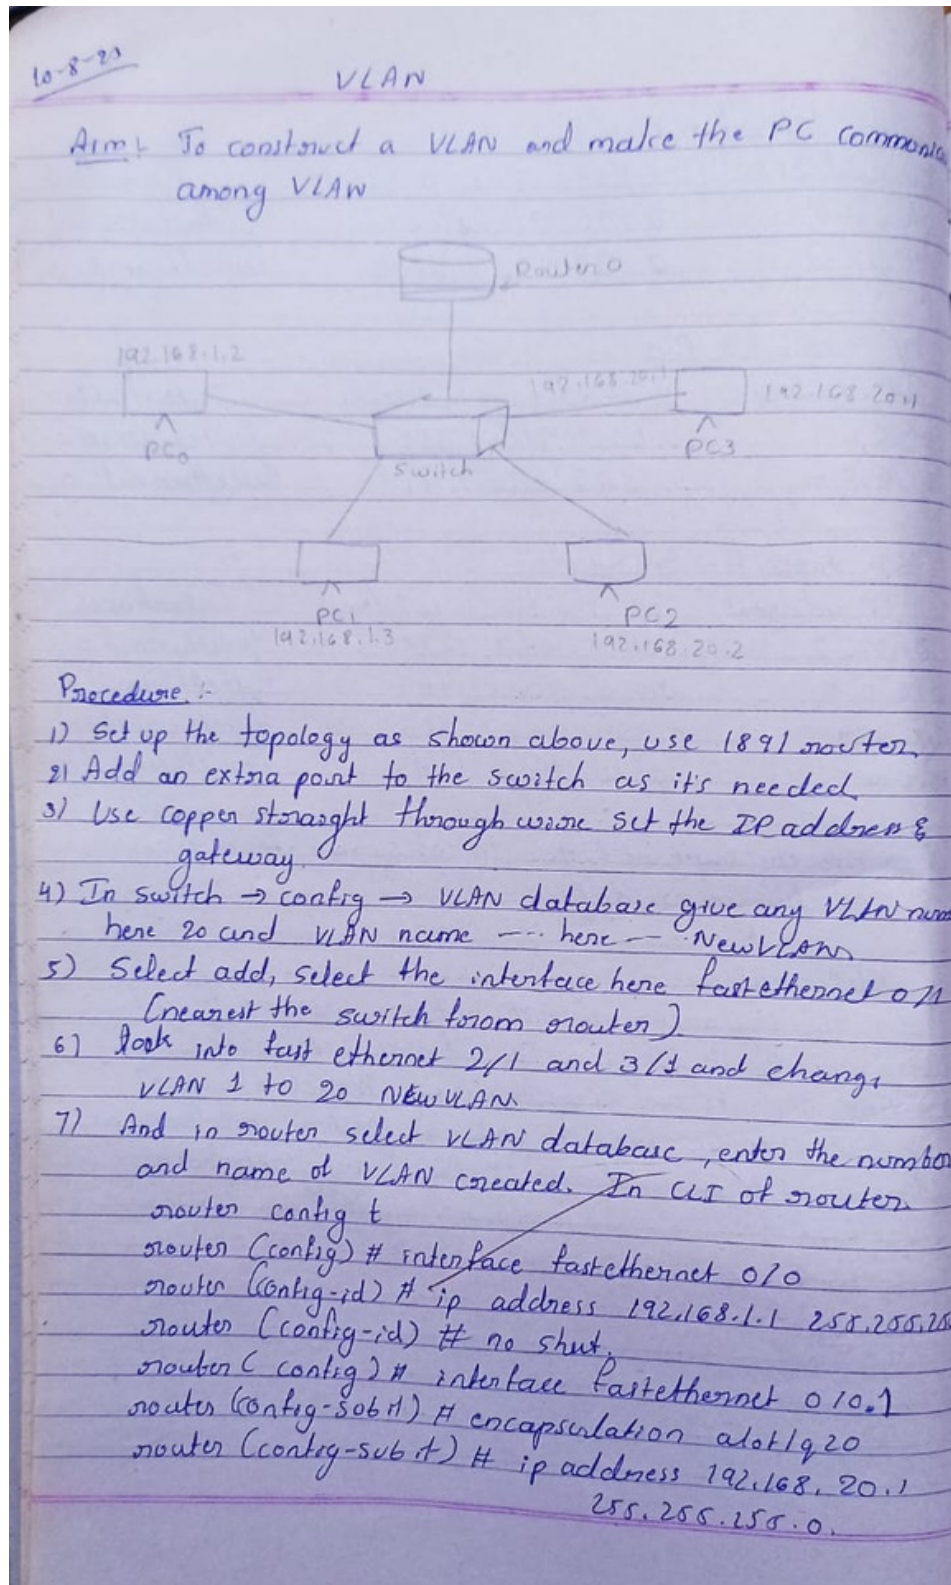 10-8-23
VLAN
Aim:- To construct a VLAN and make the PC communic
among VLAN
Router 0
192.168.1.2
192.168.20.1
192.168.20.
PC0
PC3
Switch
PC1
PC2
192.168.1.3
192.168.20.2
Procedure :-
1) Set up the topology as shown above, use 1891 router.
2) Add an extra port to the switch as it's needed
3) Use copper straight through wire set the IP address &
gateway.
4) In switch → config → VLAN database give any VLAN num
here 20 and VLAN name --- here --- NewVLAN
5) Select add, select the interface here fastethernet 0/1
(nearest the switch from router)
6) look into fast ethernet 2/1 and 3/1 and change
VLAN 1 to 20 NEWVLAN.
7) And in router select VLAN database, enter the number
and name of VLAN created. In CLI of router.
router config t
router (config) # interface fastethernet 0/0
router (config-id) # ip address 192.168.1.1 255.255.25
router (config-id) # no shut.
router (config) # interface fastethernet 0/0.1
router (config-subit) # encapsulation dot1q 20
router (config-subit) # ip address 192.168.20.1
255.255.255.0.